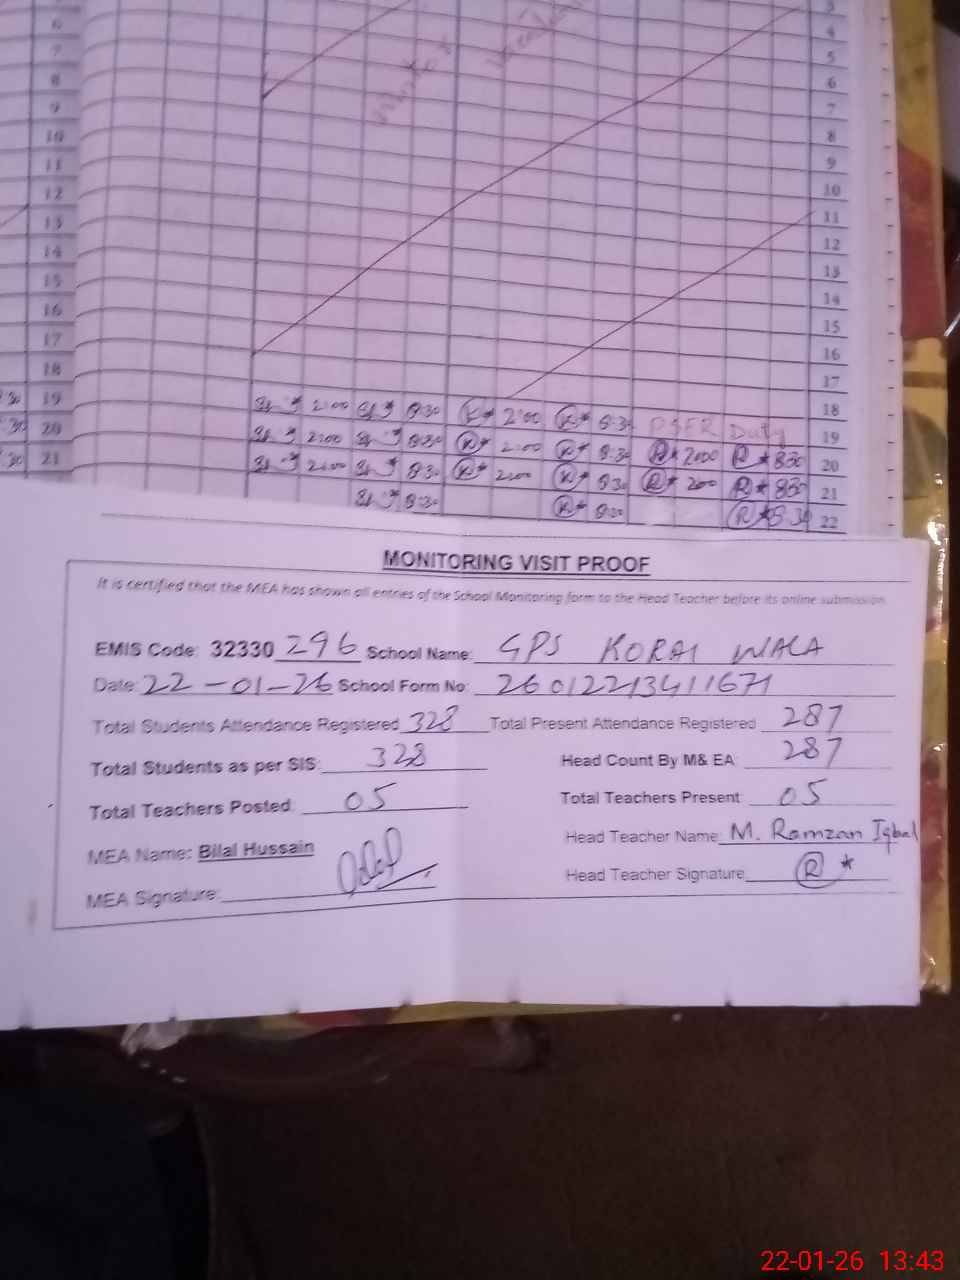 6
7
8
9
10
11
12
13
14
15
16
17
18
19
20
21
3
4
5
6
7
8
9
10
11
12
13
14
15
16
17
18
2:00 8:30 R* 2:00 R* 8:30 PSER Duty 19
2:00 8:30 R* 2:00 R* 8:30 R* 2:00 R* 8:30 20
2:00 8:30 R* 2:00 R* 8:30 R* 2:00 R* 8:30 21
8:30 R* 8:30 R* 8:30 22
MONITORING VISIT PROOF
It is certified that the MEA has shown all entries of the School Monitoring form to the Head Teacher before its online submission
EMIS Code: 32330 296 School Name: GPS KORAI WALA
Date: 22-01-26 School Form No: 26012213411671
Total Students Attendance Registered 328 Total Present Attendance Registered 287
Total Students as per SIS: 328 Head Count By M& EA 287
Total Teachers Posted: 05 Total Teachers Present 05
MEA Name: Bilal Hussain Head Teacher Name: M. Ramzan Iqbal
MEA Signature: Head Teacher Signature R *
22-01-26 13:43